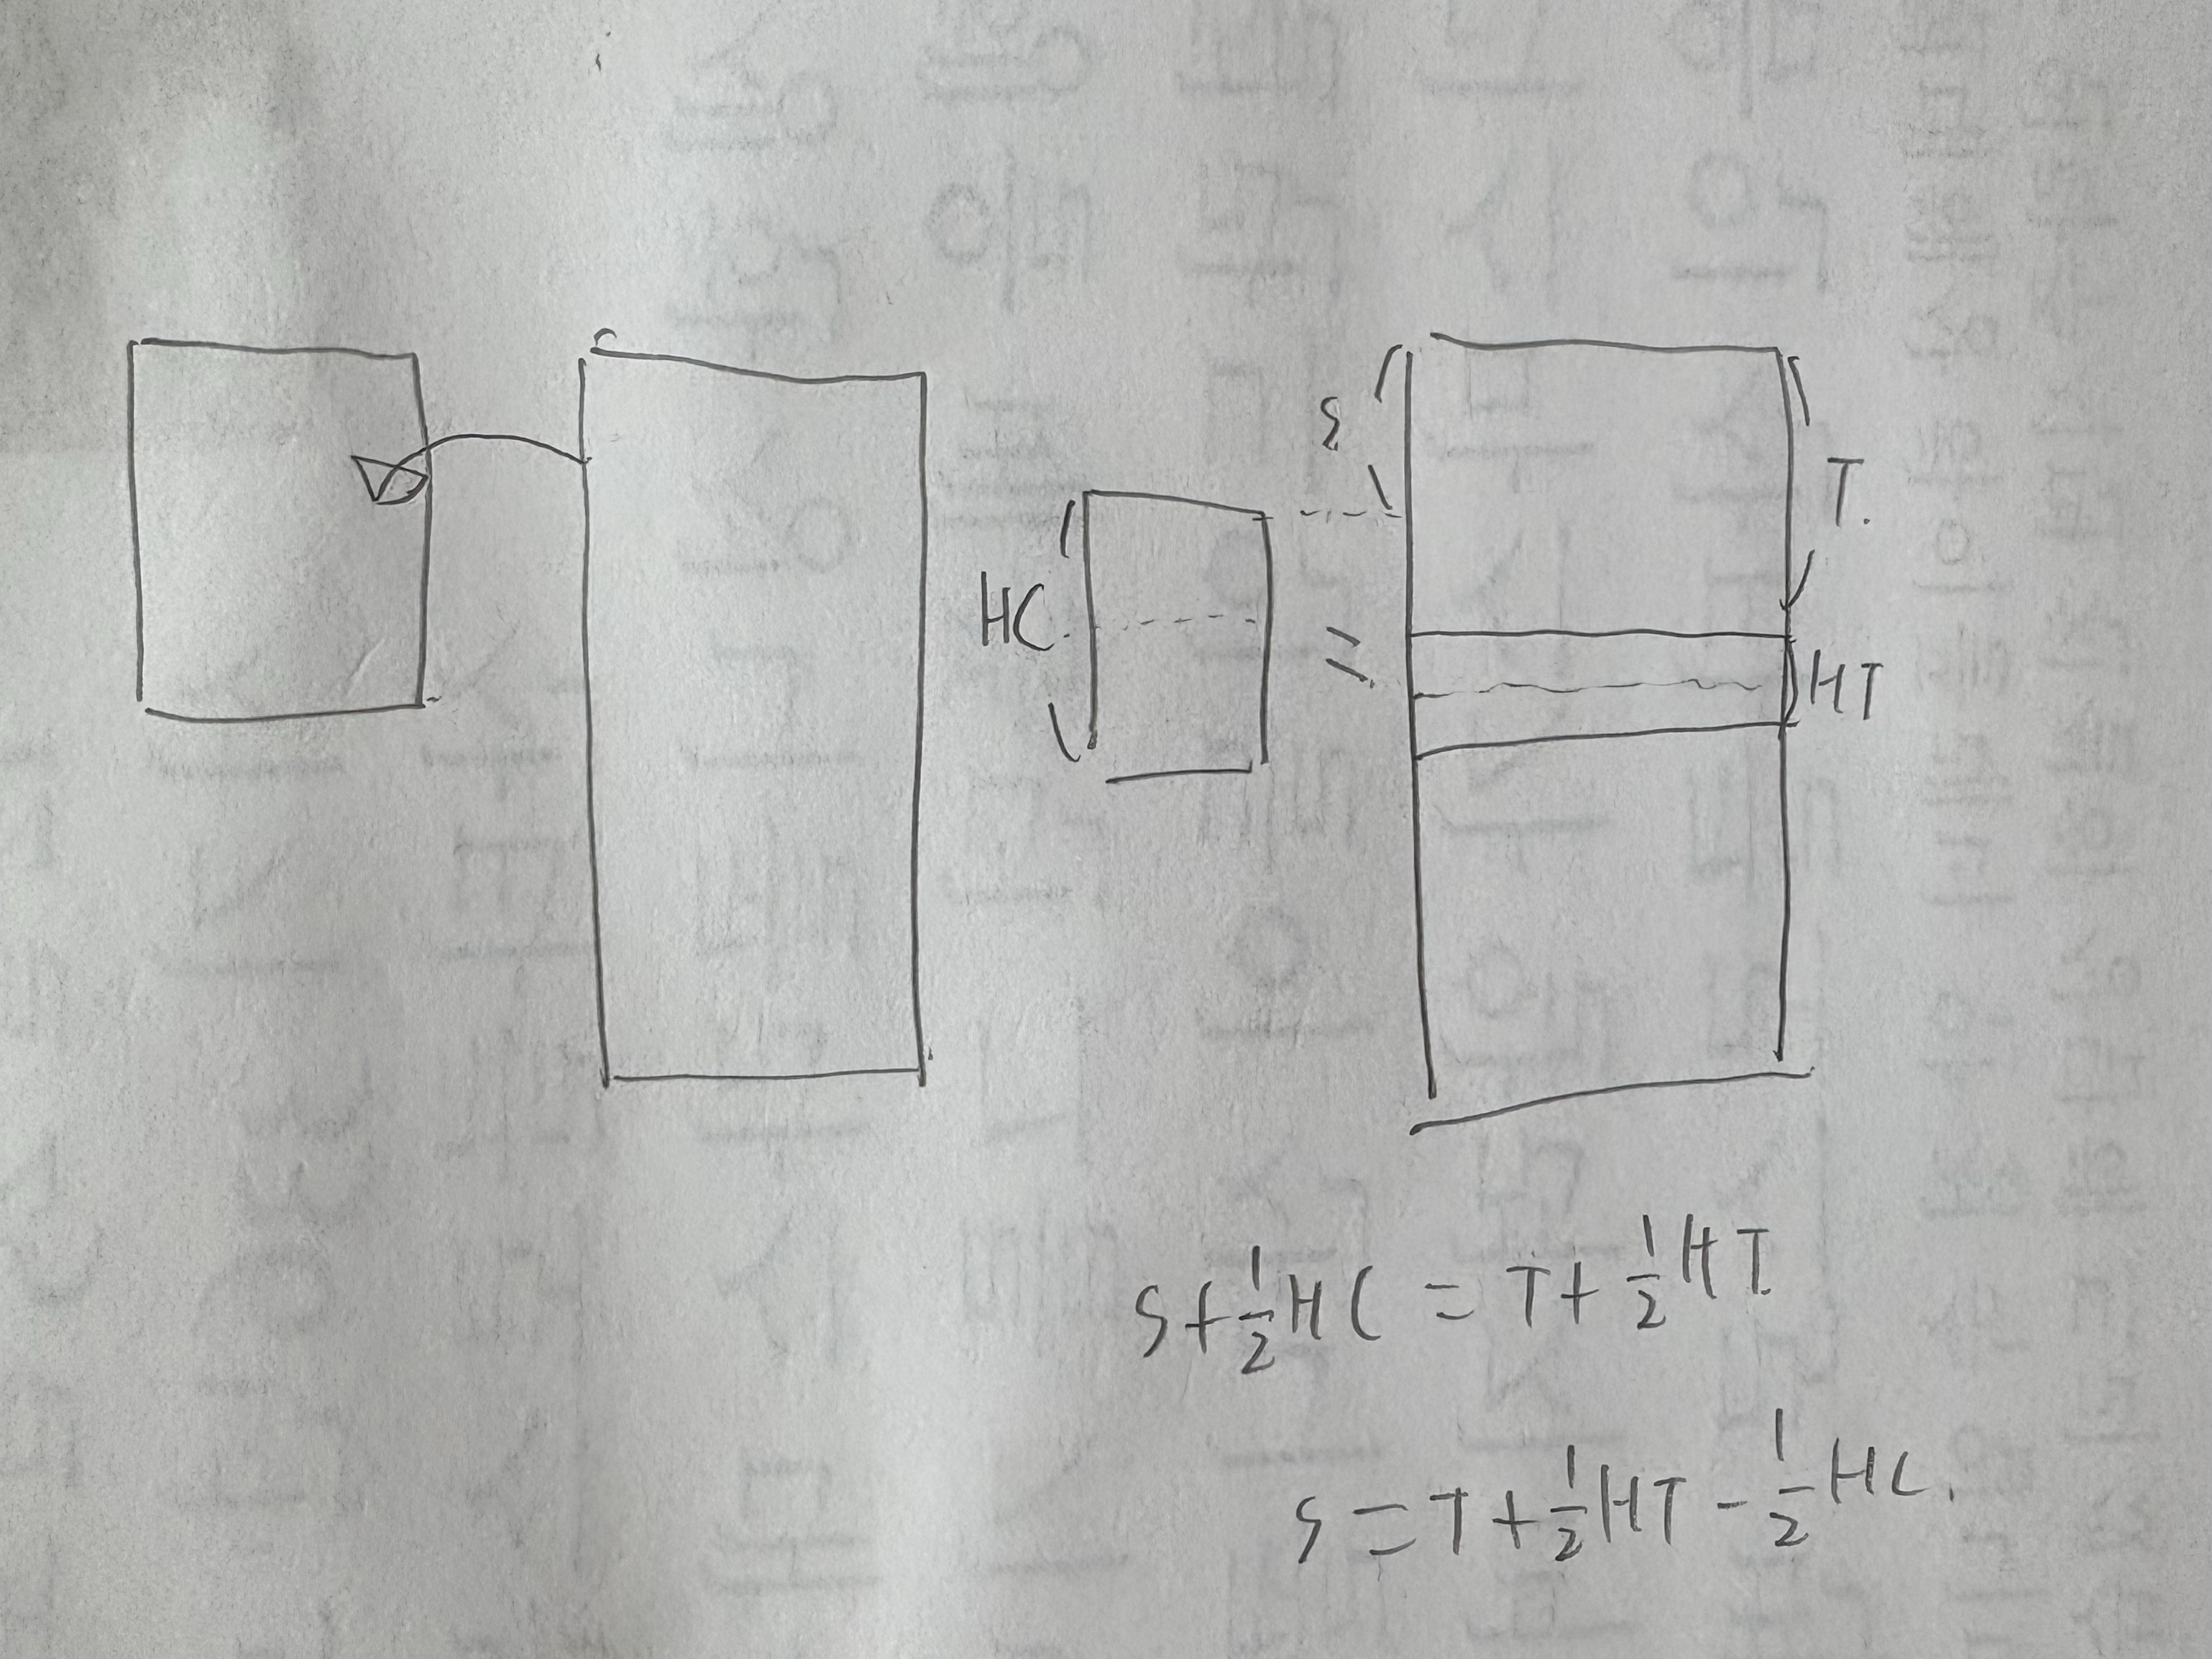 S
T.
HC
HT
S+½HC=T+½HT.
S=T+½HT-½HC.